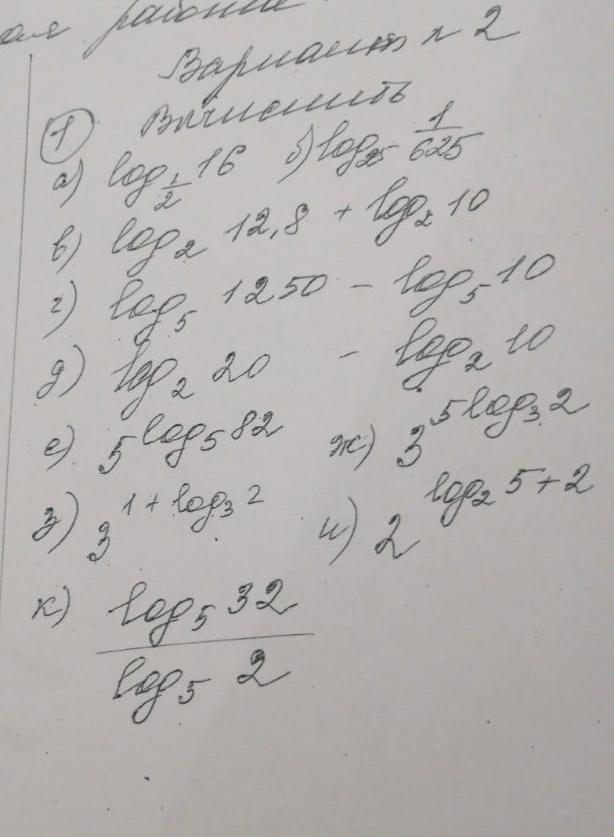 ая работа
Вариант № 2
① Вычислить
а) log_{1/2} 16 б) log_{25} 1/625
в) log_2 12,8 + log_2 10
г) log_5 1250 - log_5 10
д) log_2 20 - log_2 10
е) 5^{log_5 82} ж) 3^{5log_3 2}
з) 3^{1+log_3 2} и) 2^{log_2 5+2}
к) log_5 32
log_5 2